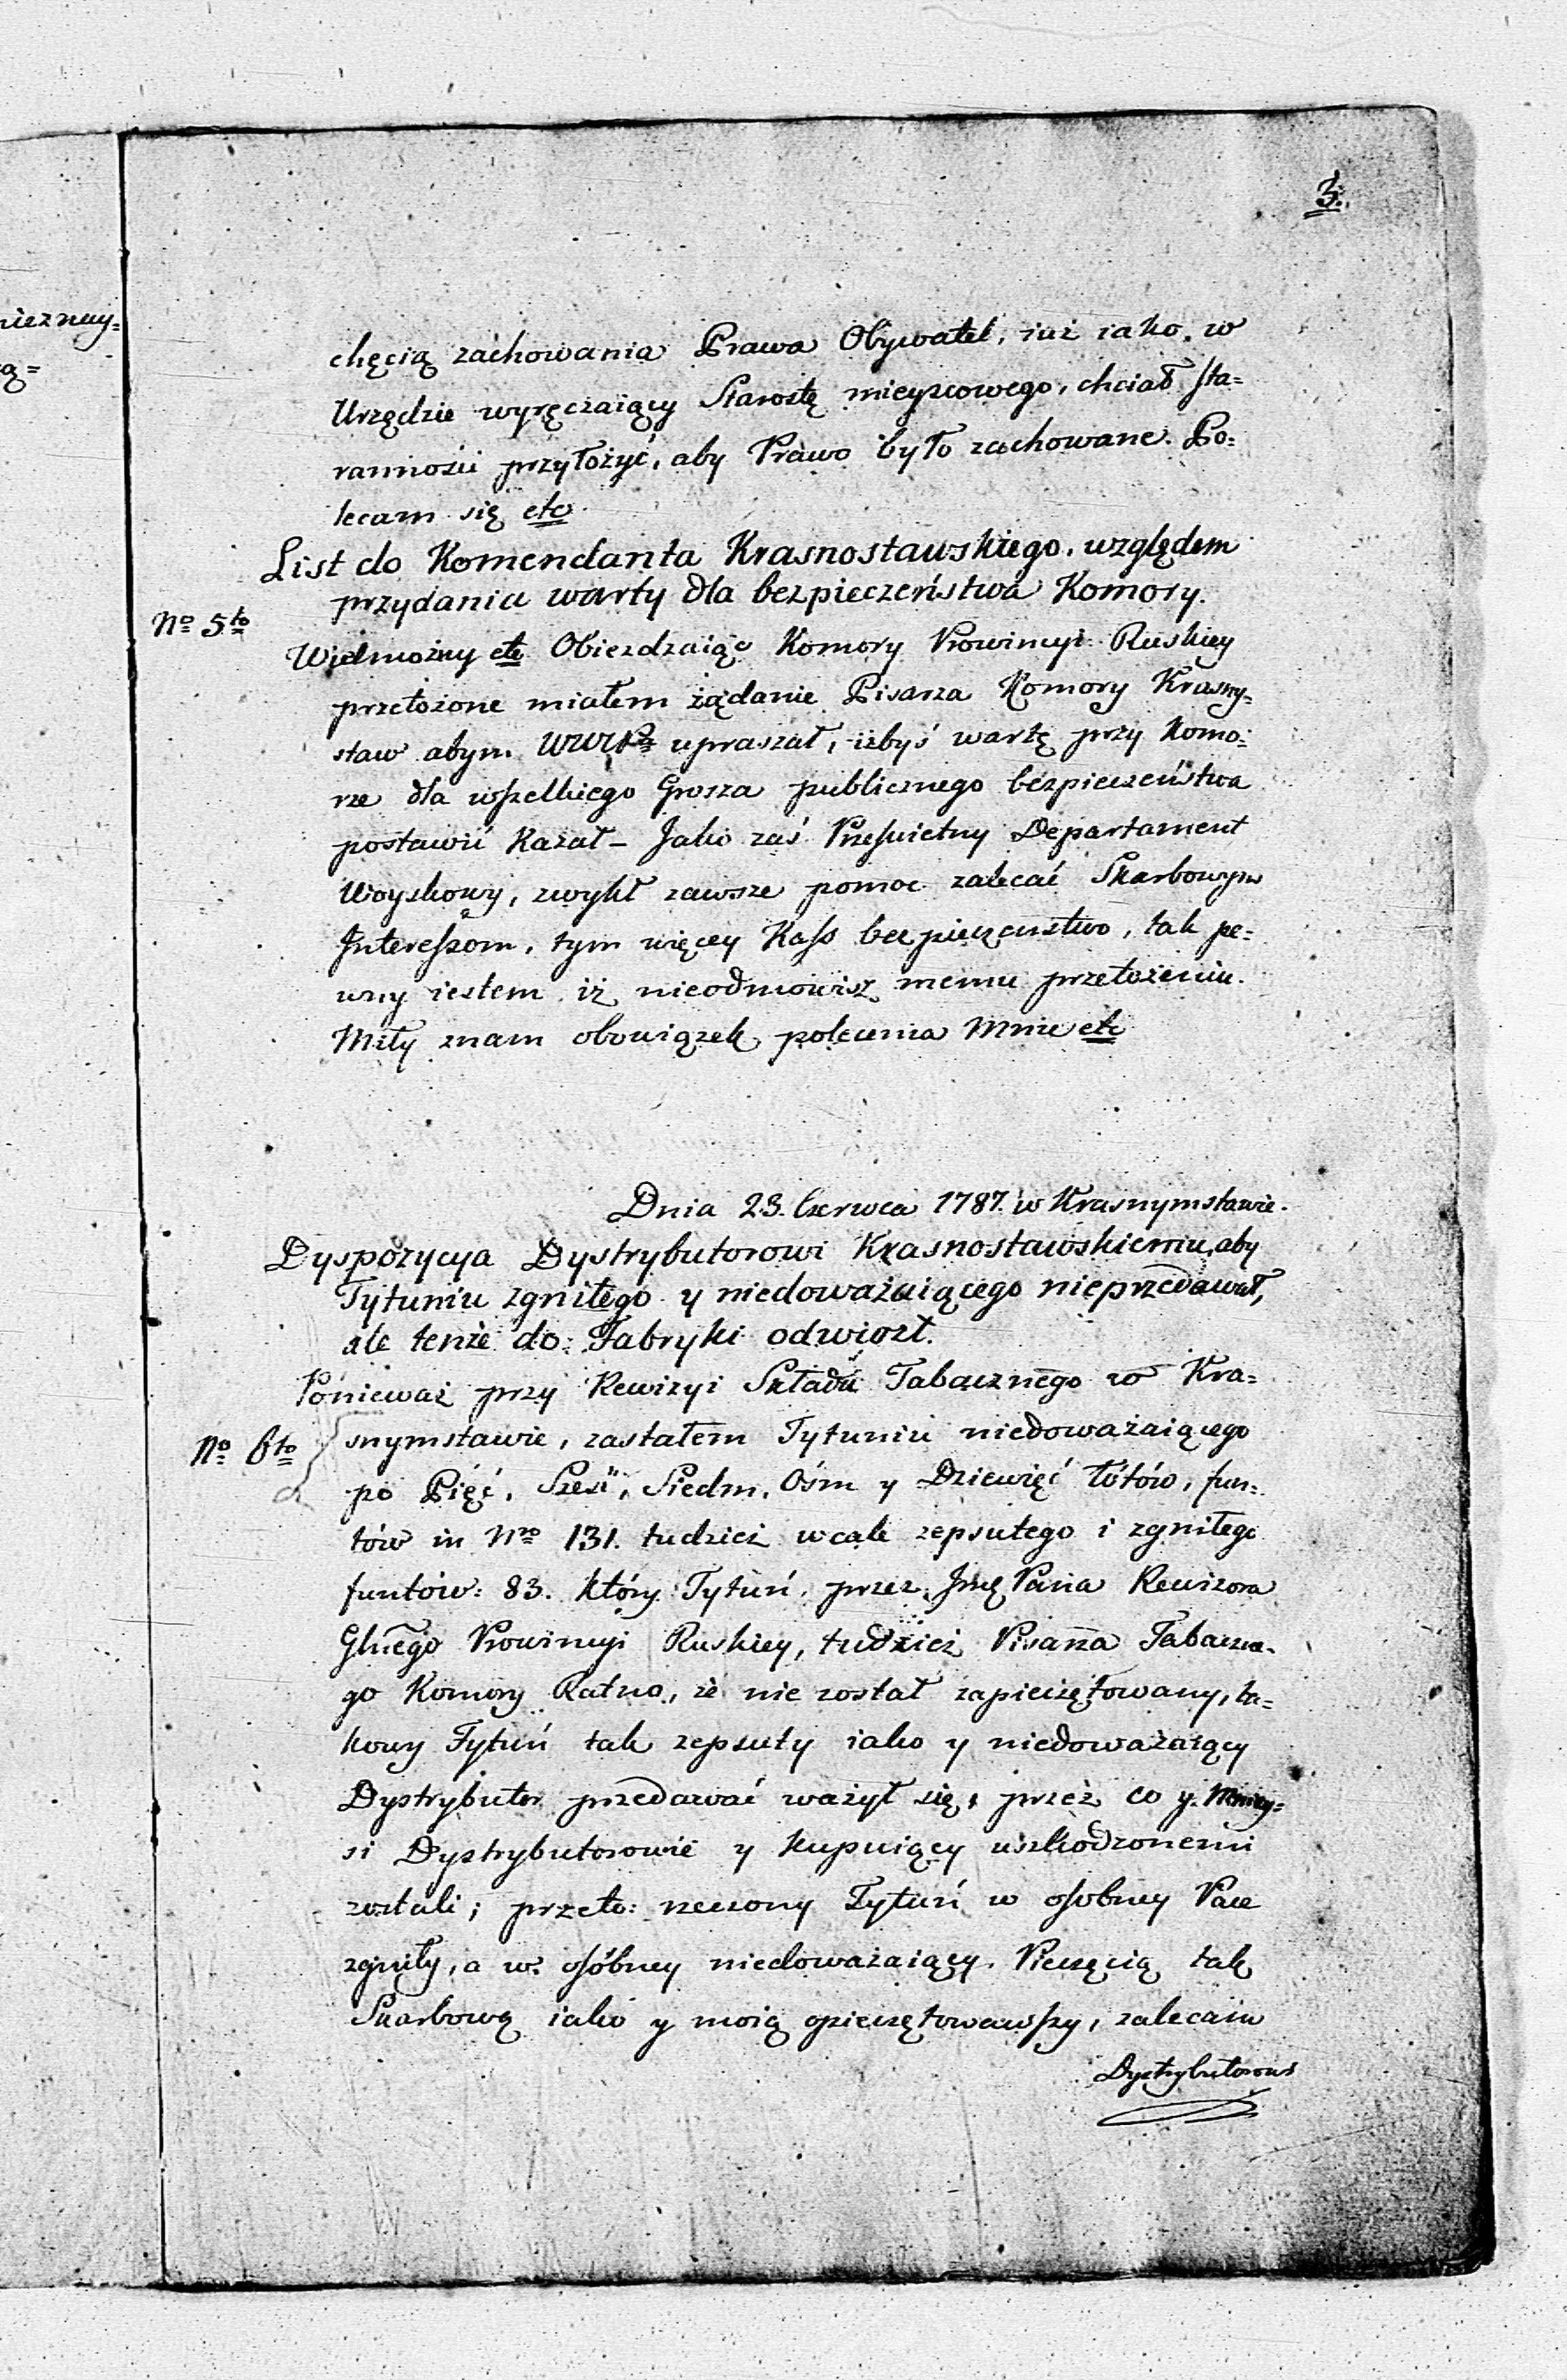 3.
nieznay=
ą=
chęcią zachowania Prawa Obywatel, iuż iako w
Urzędzie wyręczaiący Starostę mieyscowego, chciał sta=
ranności przyłożyć, aby Prawo było zachowane. Po=
lecam się etc
List do Komendanta Krasnostawskiego, względem
przydania warty dla bezpieczeństwa Komory.
No 5to
Wielmożny etc Obiezdzaiąc Komory Prowincyi Ruskiey
przełożone miałem żądanie Pisarza Komory Krasny=
staw abym WWPa upraszał, iżbyś wartę przy Komo=
rze dla wszelkiego Grosza publicznego bezpieczeństwa
postawić Kazał – Jako zaś Prześwietny Departament
Woyskowy, zwykł zawsze pomoc zalecać Skarbowym
Interessom, tym więcey Kass bezpieczenstwo, tak pe=
wny iestem iż nieodmówisz memu przełożeniu.
Miły mam obowiązek polecenia Mnie etc
Dnia 23. Czerwca 1787. w Krasnymstawie.
Dyspozycya Dystrybutorowi Krasnostawskiemu, aby
Tytuniu zgniłego y niedoważaiącego nieprzedawał,
ale tenże do Fabryki odwiozł.
Ponieważ przy Rewizyi Składu Tabacznego w Kra=
No 6to
snymstawie, zastałem Tytuniu niedoważaiącego
po Pięć, Sześć, Siedm, Ośm y Dziewięć łótów, fun=
tów in Nro 131. tudzież wcale zepsutego i zgniłego
funtów: 83. który Tytuń przez Jmę Pana Rewizora
Glnego Prowincyi Ruskiey, tudzież Pisarza Tabaczne=
go Komory Ratno, że nie został zapieczętowany, ta=
kowy Tytuń tak zepsuty iako y niedoważaiący
Dystrybutor przedawać ważył się, przez co y Mniey=
si Dystrybutorowie y kupuiący uszkodzonemi
zostali; przeto: rzeczony Tytuń w osobney Pace
zgniły, a w osóbney niedoważaiący, Pieczęcią tak
Skarbową iako y moią opieczętowawszy, zalecam
Dystrybutorowi